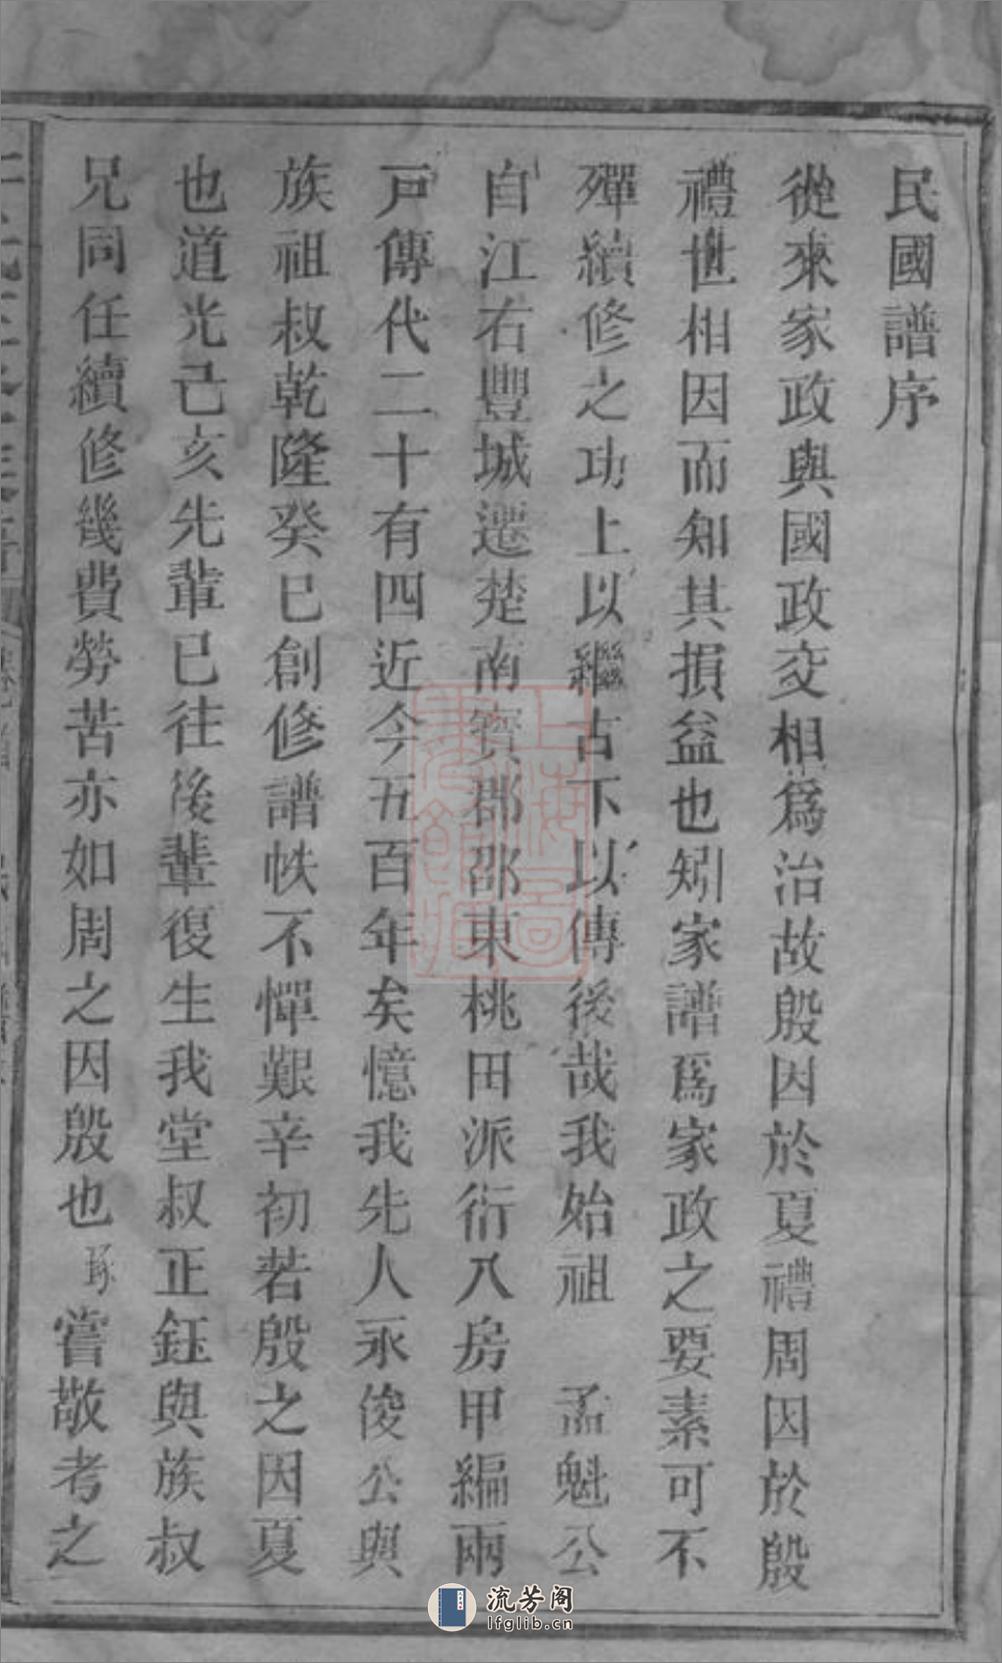 民國譜序
從來家政與國政交相爲治故殷因於夏禮周因於殷
禮世相因而知其損益也矧家譜爲家政之要素可不
殫續修之功上以繼古下以傳後哉我始祖 孟魁公
自江右豐城遷楚南寶郡邵東桃田派衍八房甲編兩
戸傳代二十有四近今五百年矣憶我先人永俊公與
族祖叔乾隆癸巳創修譜帙不憚艱辛初若殷之因夏
也道光己亥先軰已往後輩復生我堂叔正鈺與族叔
兄同任續修幾費勞苦亦如周之因殷也琢嘗敬考之
上海圖書館藏
流芳阁
lfglib.cn